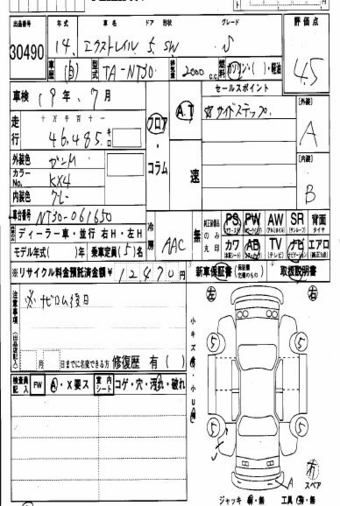 出品番号 年式 車名 ドア 形状 グレード 評価点
30490 14. エクストレイル 5 SW S 4.5
車歴 自 型式 TA-NT30 排気量 2000 c.c. 燃料 ガソリン・( )・軽油
車検 19年 7月 フロア・コラム A.T 速 セールスポイント
サイドステップ. 【外装】 A
走行 十万千百十一
46,485 キロ
外装色 ガンM
カラーNo. KX4
内装色 グレー 【内装】 B
車台番号 NT30-061650
ディーラー車・並行 右H・左H 冷房 AAC 無
PS PW AW SR 背面
カワ AB TV ナビ エアロ
モデル年式( )年 乗車定員(5)名
※リサイクル料金預託済金額 12,470円 新車保証書 取扱説明書
注意事項(出品店記入) ※ナビロム後日 左 右
小キズ 小凹
月 日までに名変できる方 修復歴 有( )
検査員記入 FW A・X要ス 室内シート コゲ・穴・汚れ・破れ
5 5
5 5
A 有 スペア
ジャッキ 有・無 工具 有・無